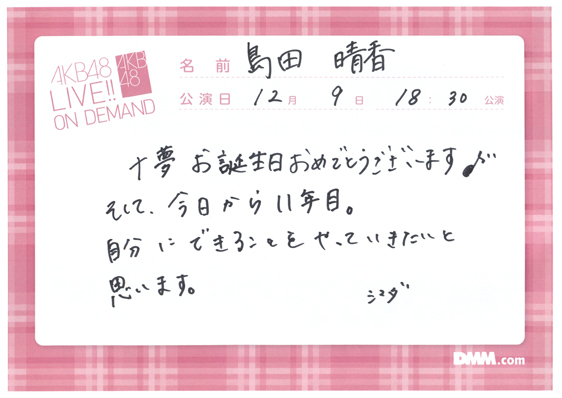 AKB48
LIVE!!
ON DEMAND
AKB
48
名前 島田 晴香
公演日 12月 9日 18:30公演
十夢 お誕生日おめでとうございます♪
そして、今日から11年目。
自分にできることをやっていきたいと
思います。
シマダ
DMM.com